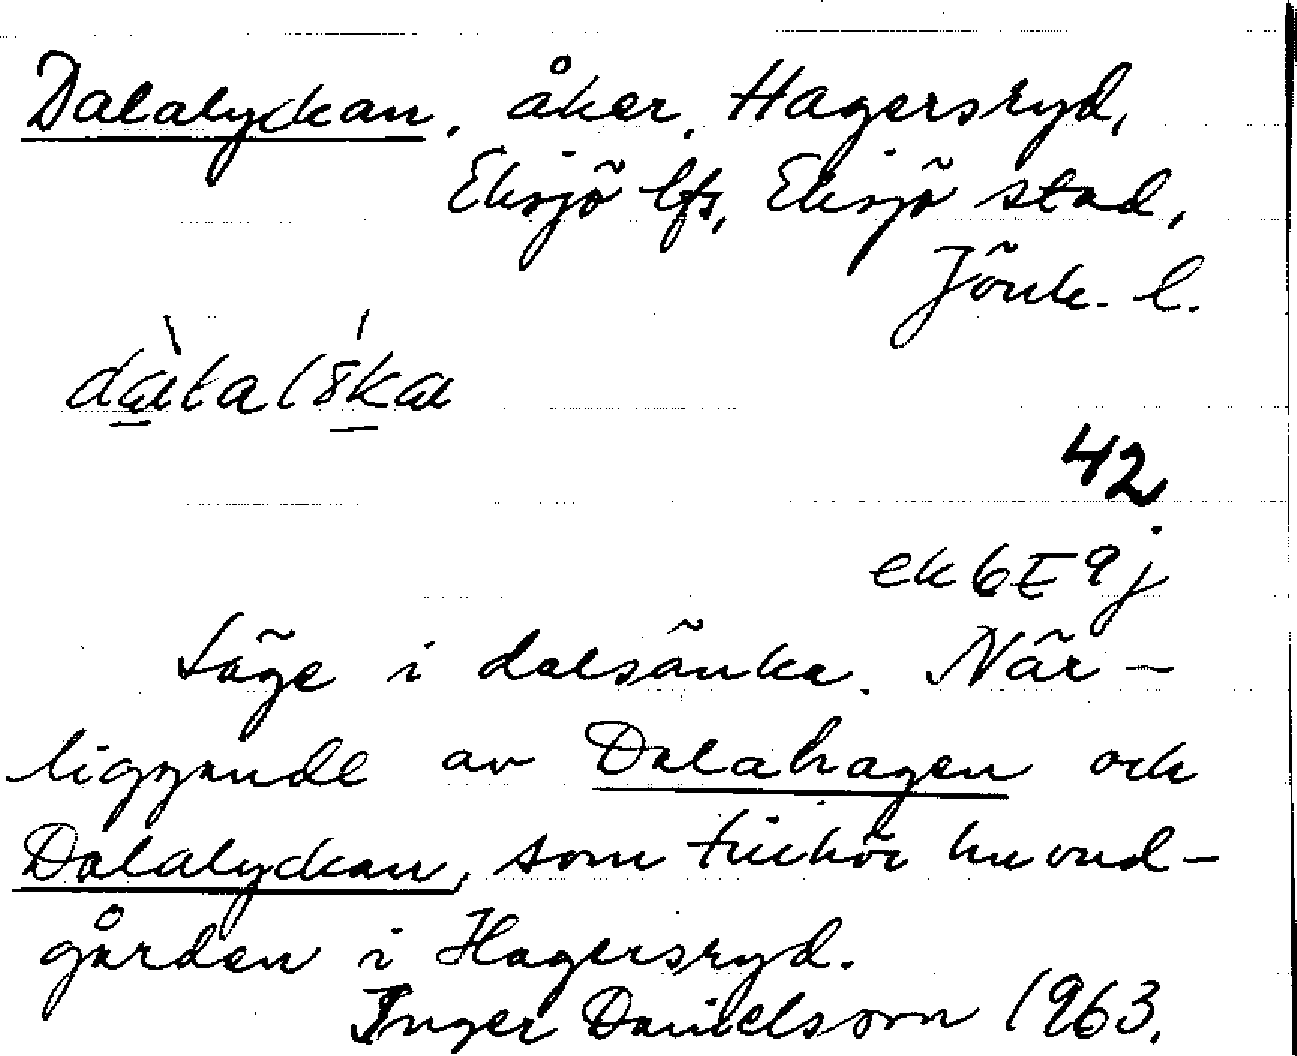 Dalalyckan, åker, Hagersryd,
Eksjö lfs, Eksjö stad,
Jönk. l.
42
ek 6 E 9 j
Läge i dalsänka. När-
liggande av Dalahagen och
Dalalyckan, som tillhör huvud-
gården i Hagersryd.
Inger Danielsson 1963.